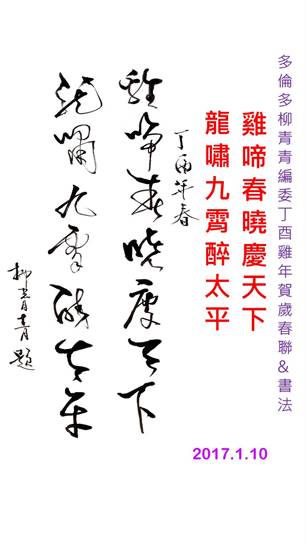 多倫多柳青青編委丁酉雞年賀歲春聯&書法
雞啼春曉慶天下
龍嘯九霄醉太平
丁酉年春
雞啼春曉慶天下
龍嘯九霄醉太平
柳青青題
2017.1.10